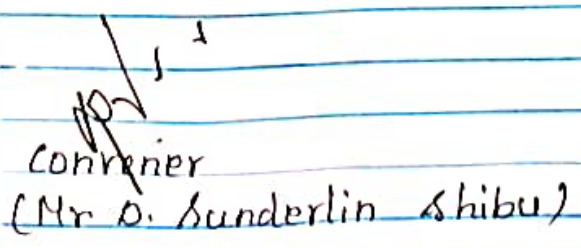 Convener
(Mr D. Sunderlin Shibu)